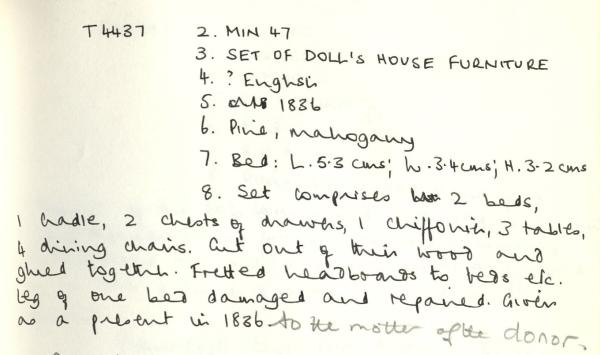 T4437 2. MIN 47
3. SET OF DOLL'S HOUSE FURNITURE
4. ? English
5. 1836
6. Pine, mahogany
7. Bed: L. 5.3 cms; W. 3.4 cms; H. 3.2 cms
8. Set comprises 2 beds,
1 cradle, 2 chests of drawers, 1 chiffonier, 3 tables,
4 dining chairs. Cut out of thin wood and
glued together. Fretted headboards to beds etc.
Leg of one bed damaged and repaired. Given
as a present in 1836 to the mother of the donor.